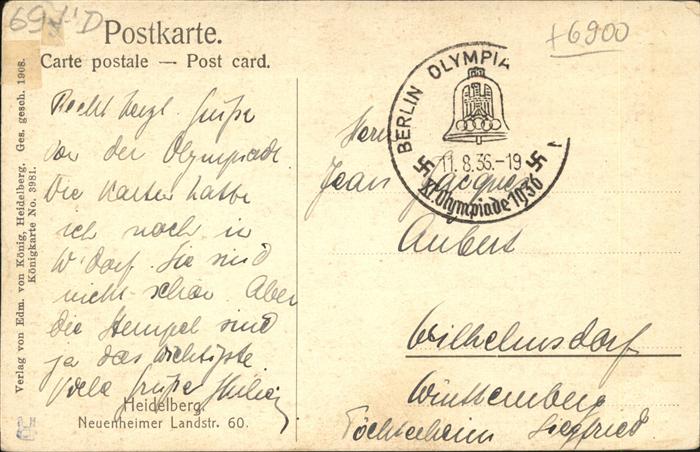 Postkarte.
Carte postale — Post card.
+6900
Verlag von Edm. von König, Heidelberg. Ges. gesch. 1908.
Königkarte No. 3981.
BERLIN OLYMPIA
11.8.36.-19
XI. Olympiade 1936
Recht herzl. Grüße
von der Olympiade
Die Karten hatte
ich noch in
W'dorf. Sie sind
nicht schön. Aber
die Stempel sind
ja das wichtigste
Viele Grüße
Heidelberg,
Neuenheimer Landstr. 60.
Herrn
Jean Jacques
Aubert
Wilhelmsdorf
Württemberg
Töchterheim Siegfried